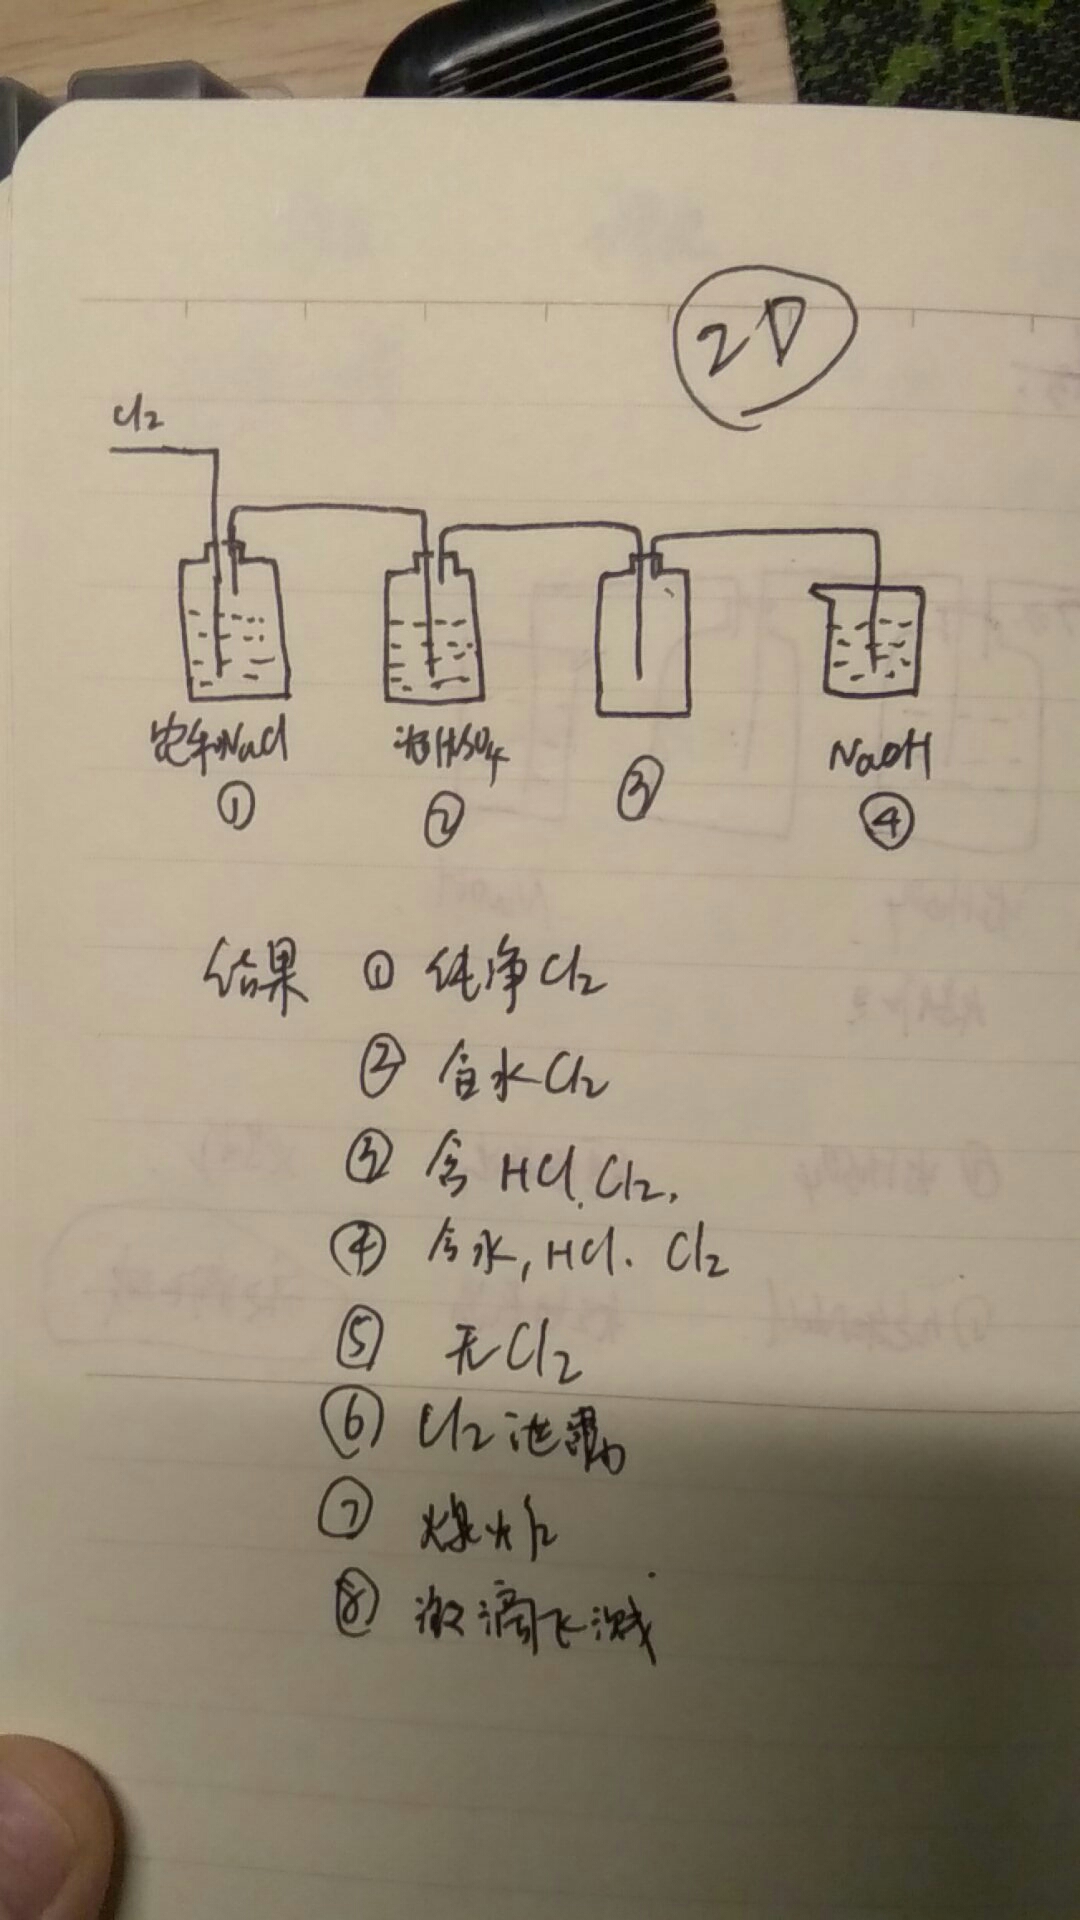 2D
Cl2
饱和NaCl
浓H2SO4
NaOH
①
②
③
④
结果 ① 纯净Cl2
② 含水Cl2
③ 含HCl.Cl2.
④ 含水,HCl.Cl2
⑤ 无Cl2
⑥ Cl2泄露
⑦ 爆炸
⑧ 液滴飞溅